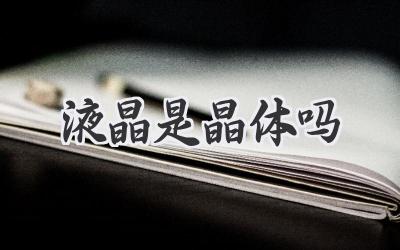 液晶是晶体吗